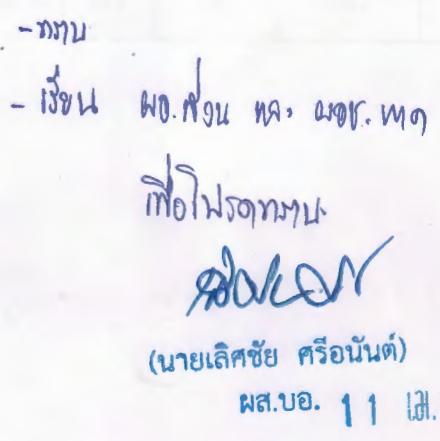 - ทราบ
- เรียน ผอ.ส่วน และ ผอช. ภาค
เพื่อโปรดทราบ
(นายเลิศชัย ศรีอนันต์)
ผส.บอ. 11 เม.